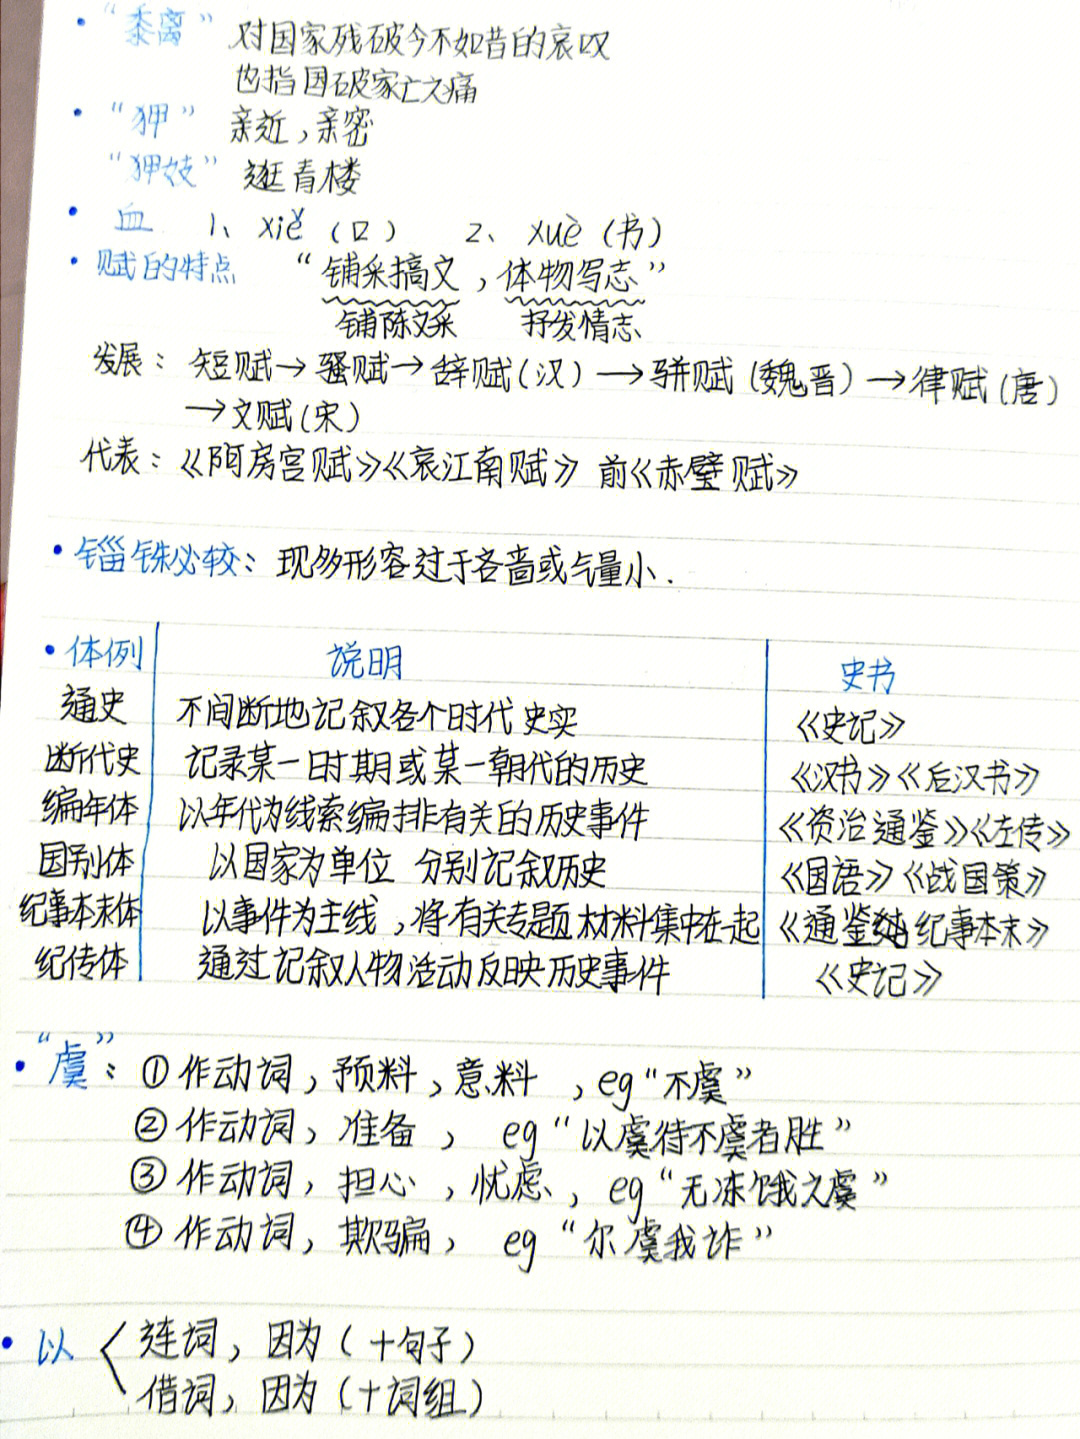 • “黍离” 对国家残破今不如昔的哀叹
也指国破家亡之痛
• “狎” 亲近，亲密
“狎妓” 逛青楼
• 血 1、xiě（口） 2、xuè（书）
• 赋的特点 “铺采摛文，体物写志”
铺陈文采 抒发情志
发展：短赋→骚赋→辞赋（汉）→骈赋（魏晋）→律赋（唐）
→文赋（宋）
代表：《阿房宫赋》《哀江南赋》 前《赤壁赋》
• 锱铢必较：现多形容过于吝啬或气量小.
• 体例 说明 史书
通史 不间断地记叙各个时代史实 《史记》
断代史 记录某一时期或某一朝代的历史 《汉书》《后汉书》
编年体 以年代为线索编排有关的历史事件 《资治通鉴》《左传》
国别体 以国家为单位 分别记叙历史 《国语》《战国策》
纪事本末体 以事件为主线，将有关专题材料集中在一起 《通鉴纪事本末》
纪传体 通过记叙人物活动反映历史事件 《史记》
• “虞”：①作动词，预料，意料，eg“不虞”
②作动词，准备，eg“以虞待不虞者胜”
③作动词，担心，忧虑，eg“无冻饿之虞”
④作动词，欺骗，eg“尔虞我诈”
• 以 连词，因为（+句子）
借词，因为（+词组）